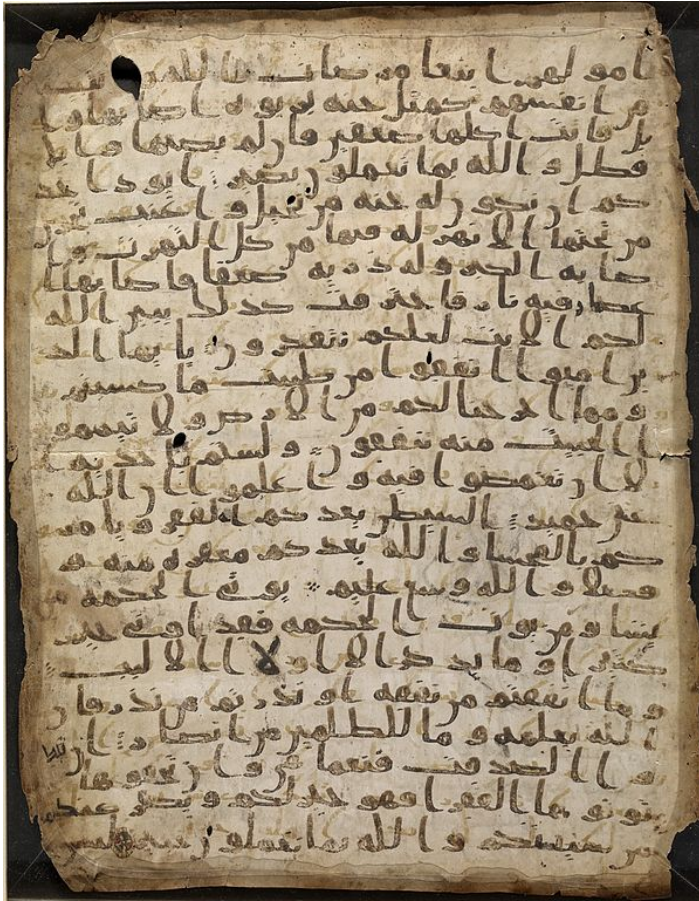 امولهم ابتغا مرضات الله وتثبيتا
من انفسهم كمثل جنة بربوة اصابها وا
بل فاتت اكلها ضعفين فان لم يصبها وابل
فطل والله بما تعملون بصير ايود احد
كم ان تكون له جنة من نخيل واعنب تجري
من تحتها الانهر له فيها من كل الثمرت وا
صابه الكبر وله ذرية ضعفا فاصابها ا
عصار فيه نار فاحترقت كذلك يبين الله
لكم الايت لعلكم تتفكرون يايها الذ
ين امنوا انفقوا من طيبت ما كسبتم
ومما اخرجنا لكم من الارض ولا تيممو
ا الخبيث منه تنفقون ولستم باخذيه ا
لا ان تغمضوا فيه واعلموا ان الله
غني حميد الشيطن يعدكم الفقر ويامر
كم بالفحشا والله يعدكم مغفرة منه و
فضلا والله وسع عليم يوتي الحكمة من
يشا ومن يوت الحكمة فقد اوتي خيرا
كثيرا وما يذكر الا اولوا الالبب
وما انفقتم من نفقة او نذرتم من نذر فان
الله يعلمه وما للظلمين من انصار ان
الصدقت فنعما هي وان تخفوها
وتوتوها الفقرا فهو خير لكم ويكفر عنكم
من سيتكم والله بما تعملون خبير ليس